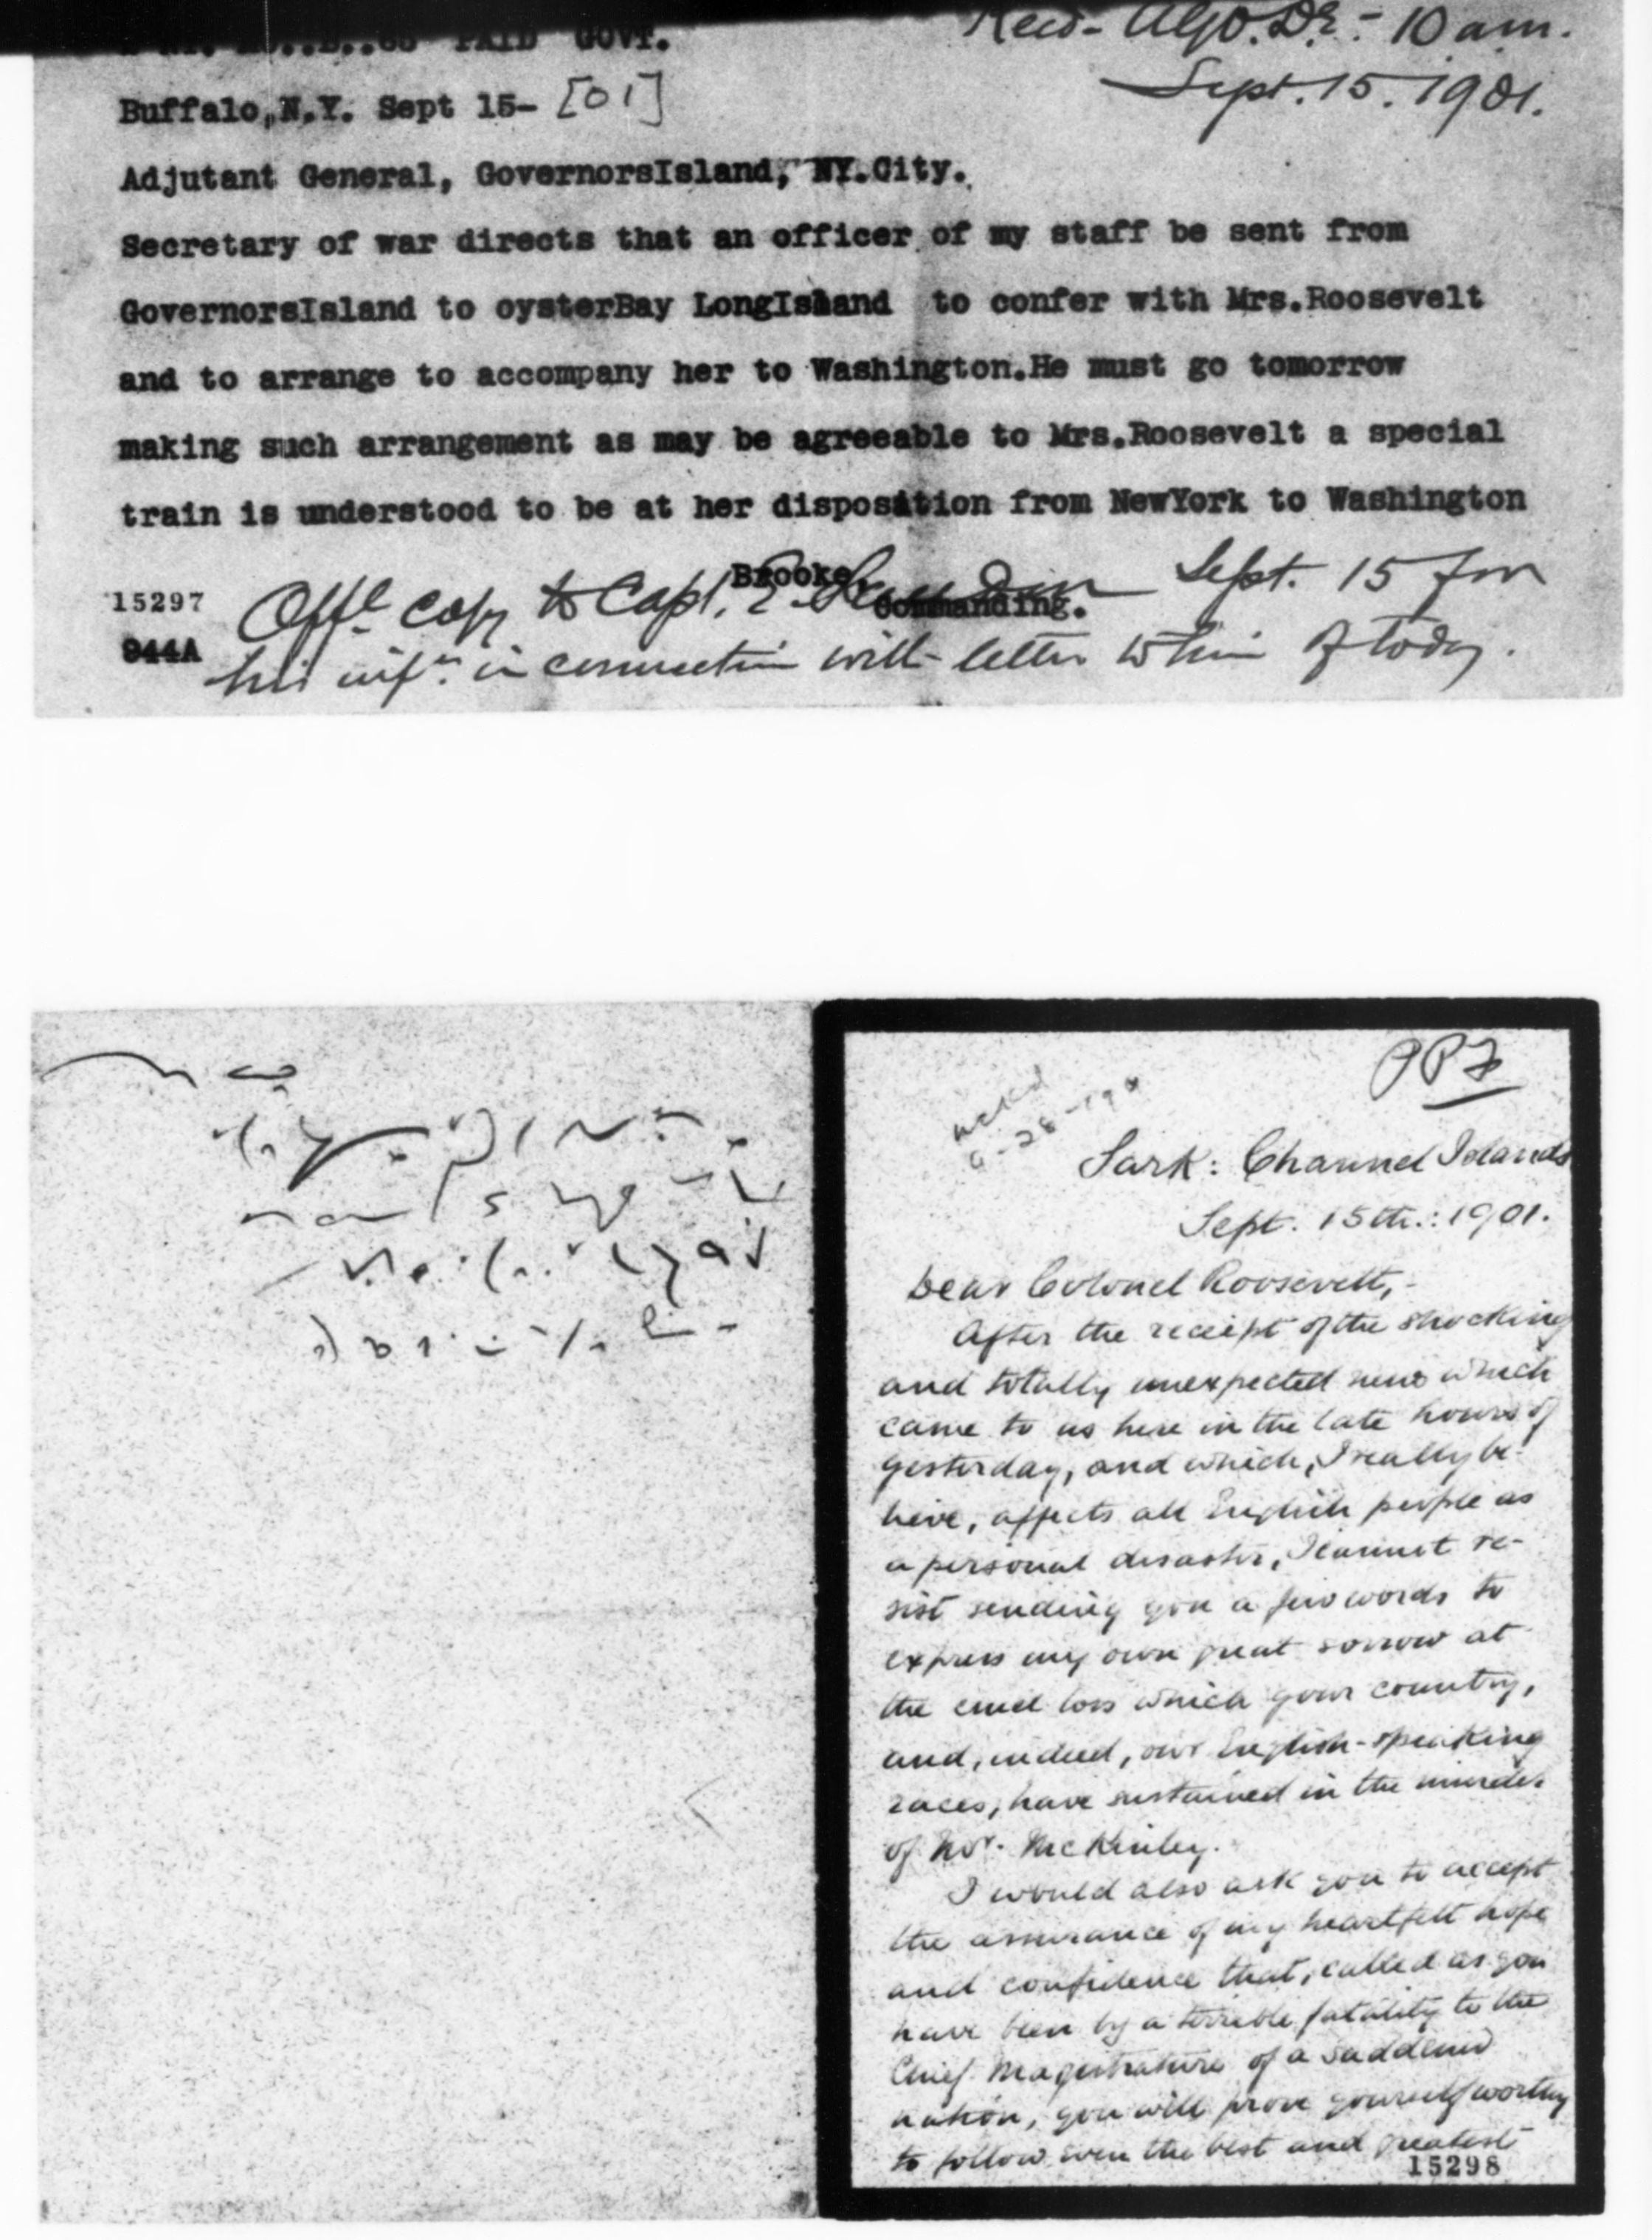 PAID GOVT.
Recd- AGO. DE.- 10 am.
Sept. 15. 1901.
Buffalo,N.Y. Sept 15- [01]
Adjutant General, GovernorsIsland, NY.City.
Secretary of war directs that an officer of my staff be sent from
GovernorsIsland to oysterBay LongIsland to confer with Mrs.Roosevelt
and to arrange to accompany her to Washington.He must go tomorrow
making such arrangement as may be agreeable to Mrs.Roosevelt a special
train is understood to be at her disposition from NewYork to Washington
Brooke,
Commanding.
15297
944A
Offl. copy to Capt. Sept. 15 for
his infn. in connection with letter to him of today.
PPF
ackd
Sark: Channel Islands
Sept. 15th.: 1901.
Dear Colonel Roosevelt,-
After the receipt of the shocking
and totally unexpected news which
came to us here in the late hours of
yesterday, and which, I really be-
lieve, affects all English people as
a personal disaster, I cannot re-
sist sending you a few words to
express my own great sorrow at
the cruel loss which your country,
and, indeed, our English-speaking
races, have sustained in the murder
of Mr. McKinley.
I would also ask you to accept
the assurance of my heartfelt hope
and confidence that, called as you
have been by a terrible fatality to the
Chief Magistrature of a saddened
nation, you will prove yourself worthy
to follow even the best and greatest
15298